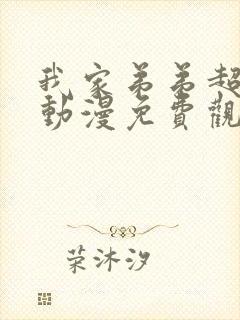 我家弟弟超
動漫免費觀
荣沐汐